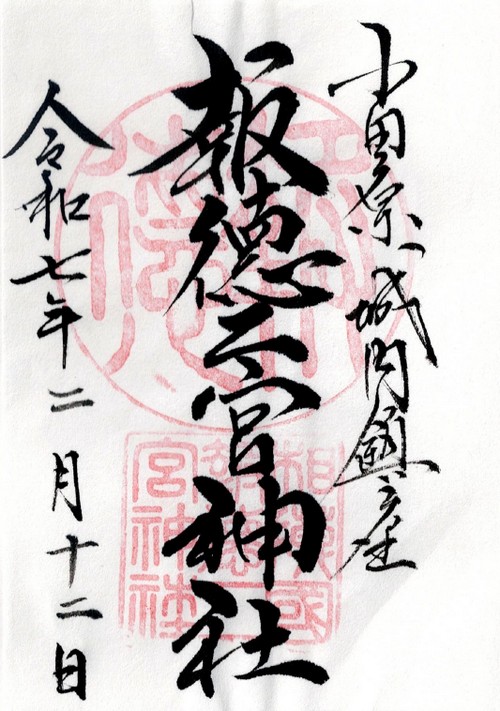 小田原城内鎮座
報徳二宮神社
令和七年二月十二日
相模國
報徳二
宮神社